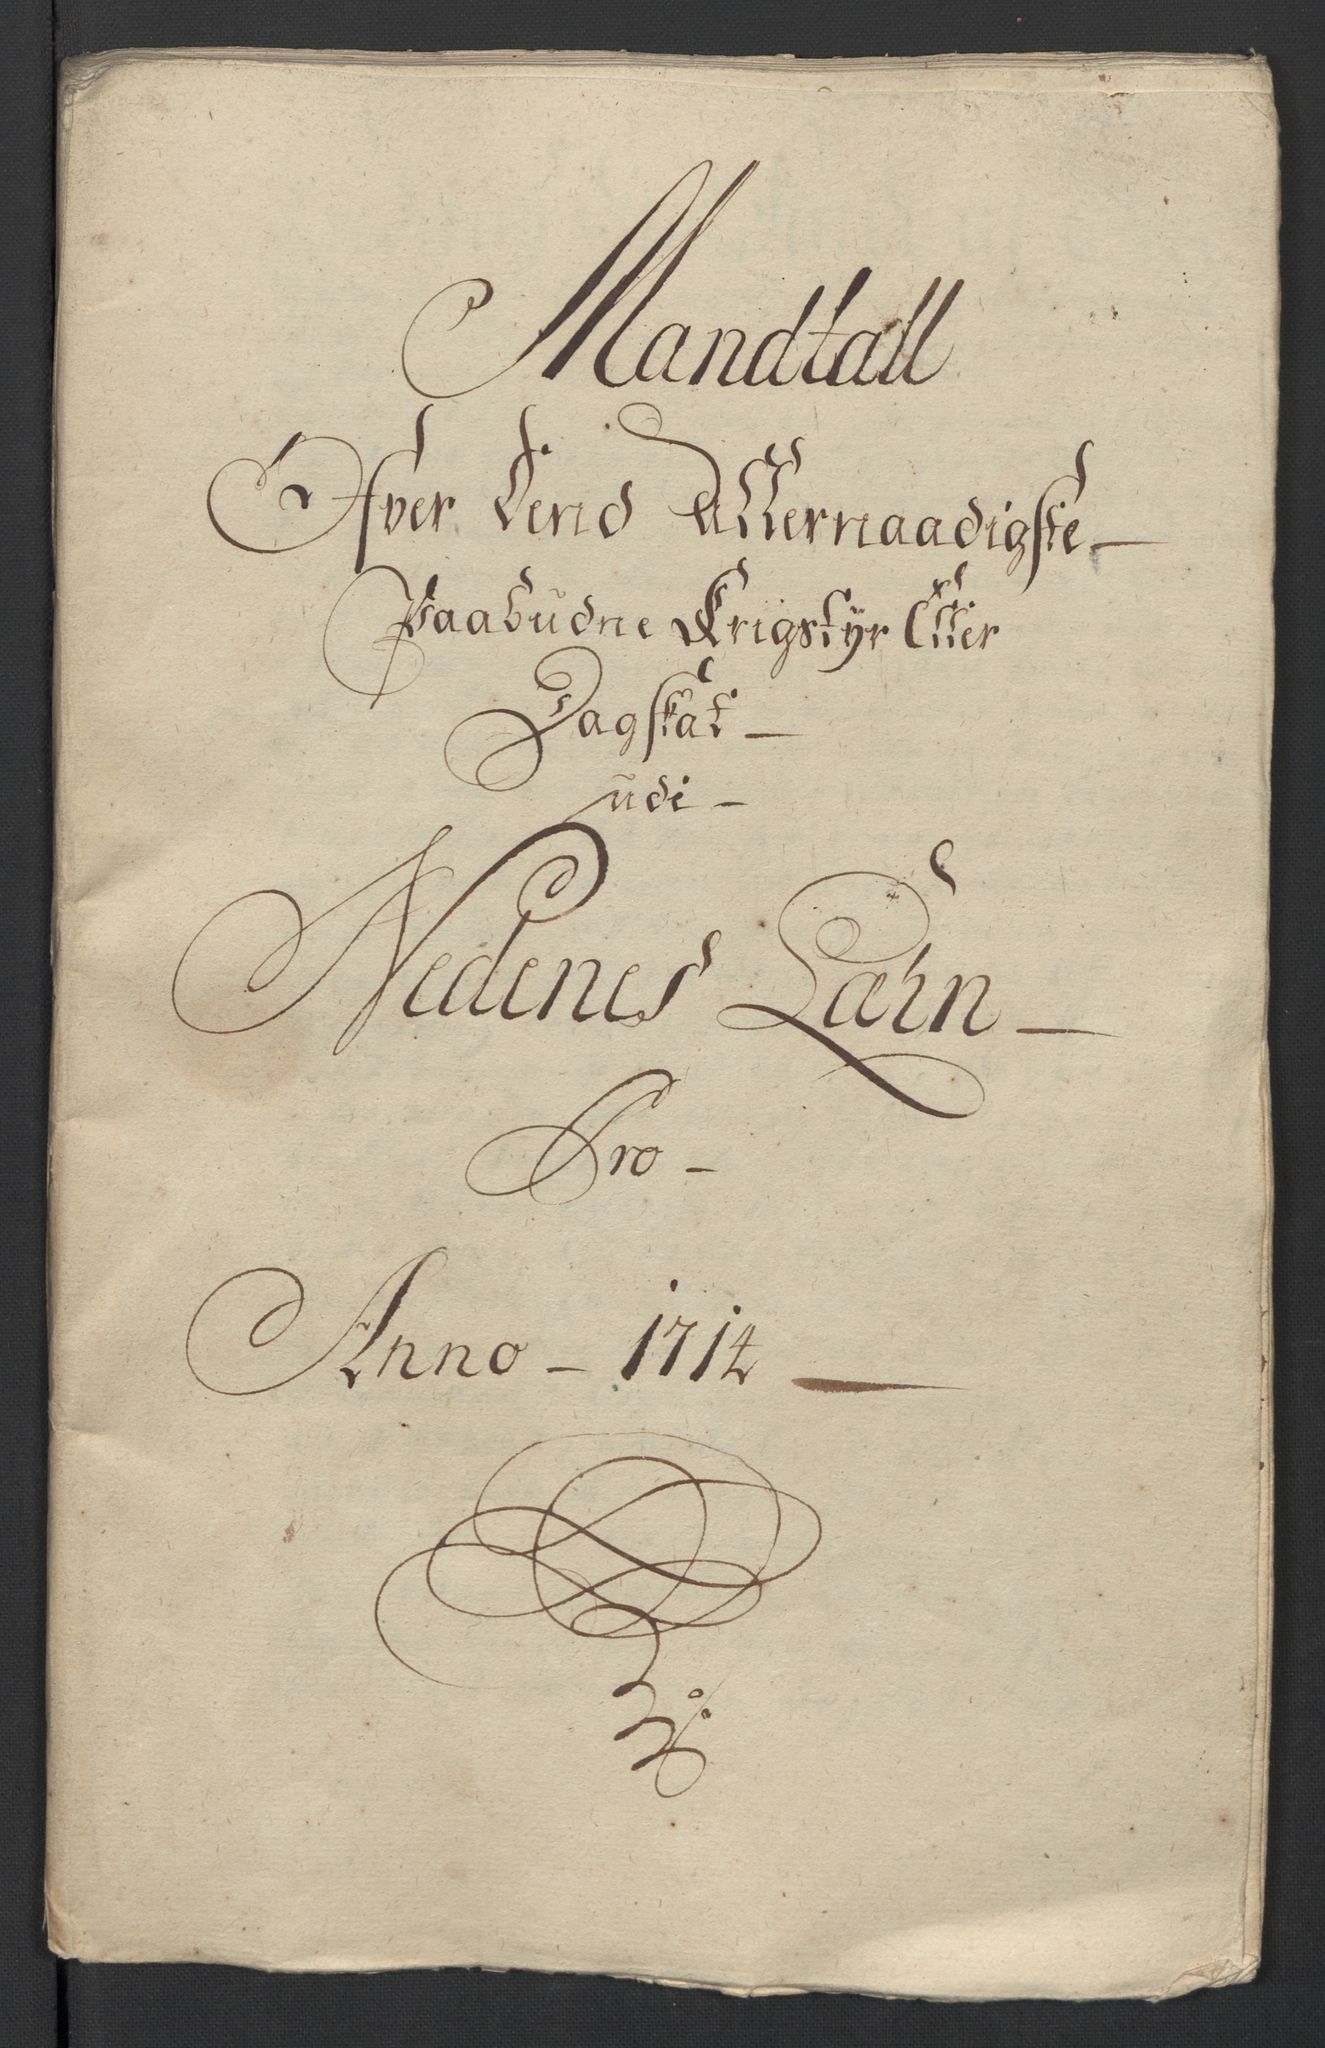 Mandtall
Ofver dend Allernaadigste
Paabudne Krigstÿr Eller
Dagskat
udi
Nedenes Læhn
Pro
Anno 1714